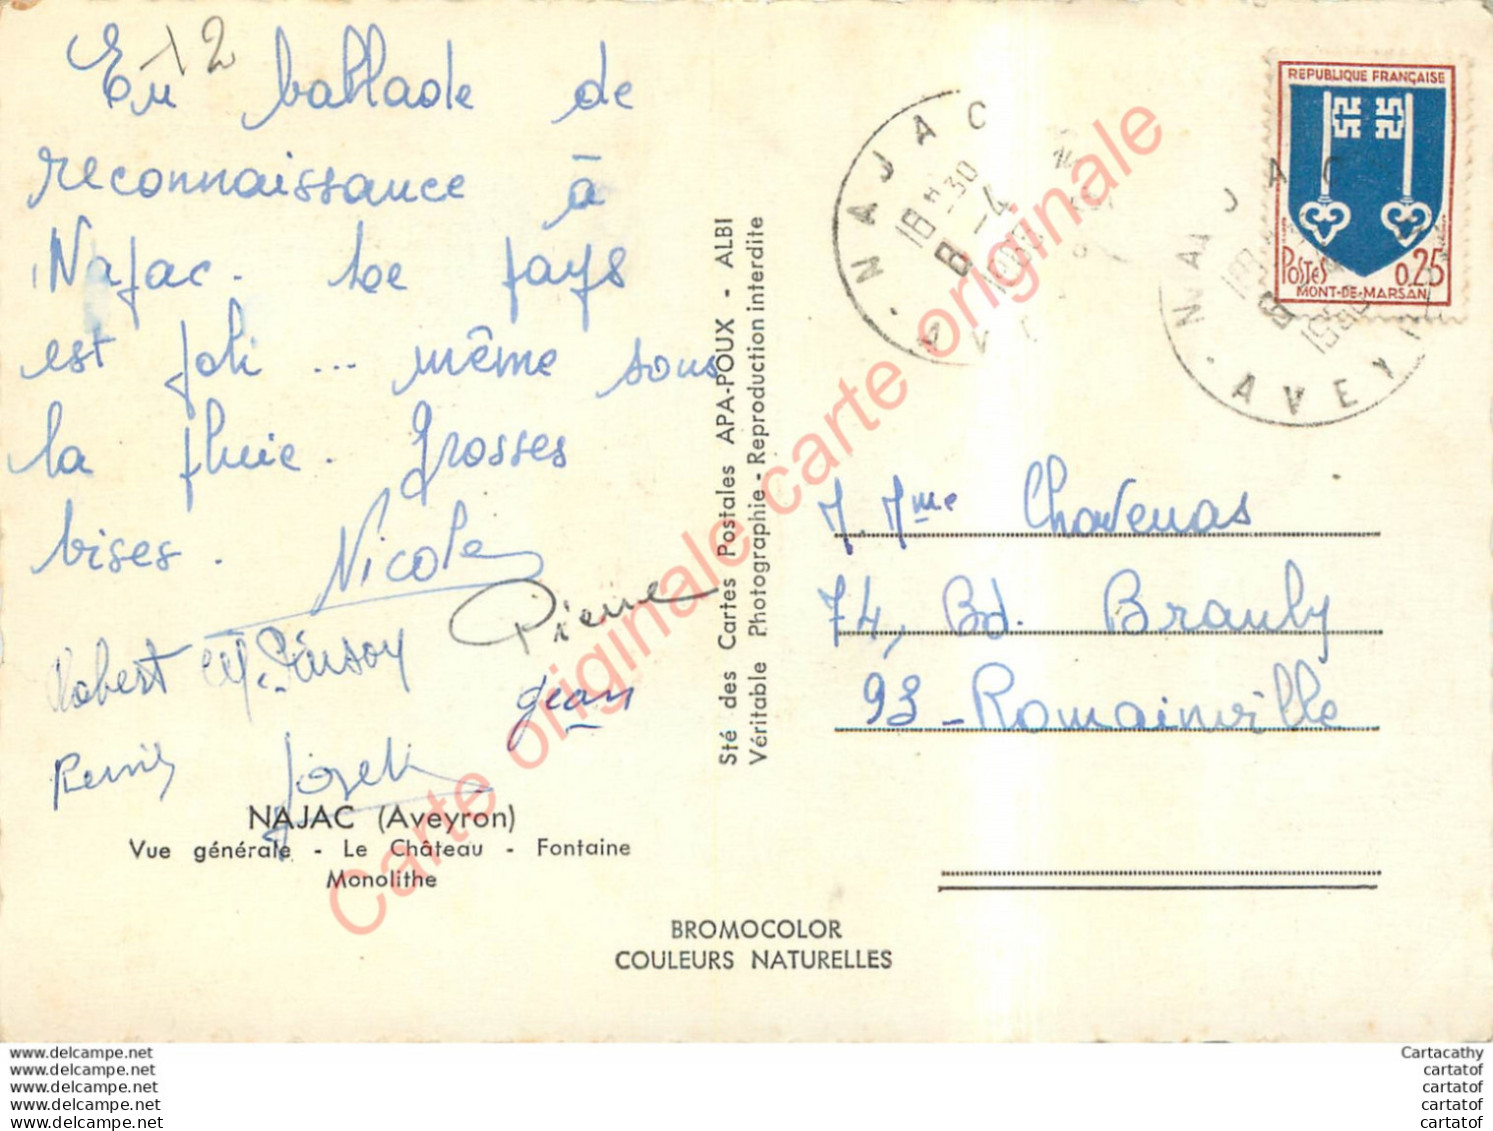 12
En ballade de
reconnaissance à
Najac. Le pays
est joli ... même sous
la pluie. Grosses
bises.
Nicole
Pierre
Robert
Jean
NAJAC (Aveyron)
Vue générale - Le Château - Fontaine
Monolithe
Sté des Cartes Postales APA-POUX - ALBI
Véritable Photographie - Reproduction interdite
BROMOCOLOR
COULEURS NATURELLES
NAJAC
18H30
8-4
AV
REPUBLIQUE FRANÇAISE
POSTES 0,25
MONT-DE-MARSAN
NAJAC
AVEY
M. Mme
74, Bd. Brauly
93 - Romainville
Carte originale carte originale
www.delcampe.net
www.delcampe.net
www.delcampe.net
www.delcampe.net
www.delcampe.net
Cartacathy
cartatof
cartatof
cartatof
cartatof